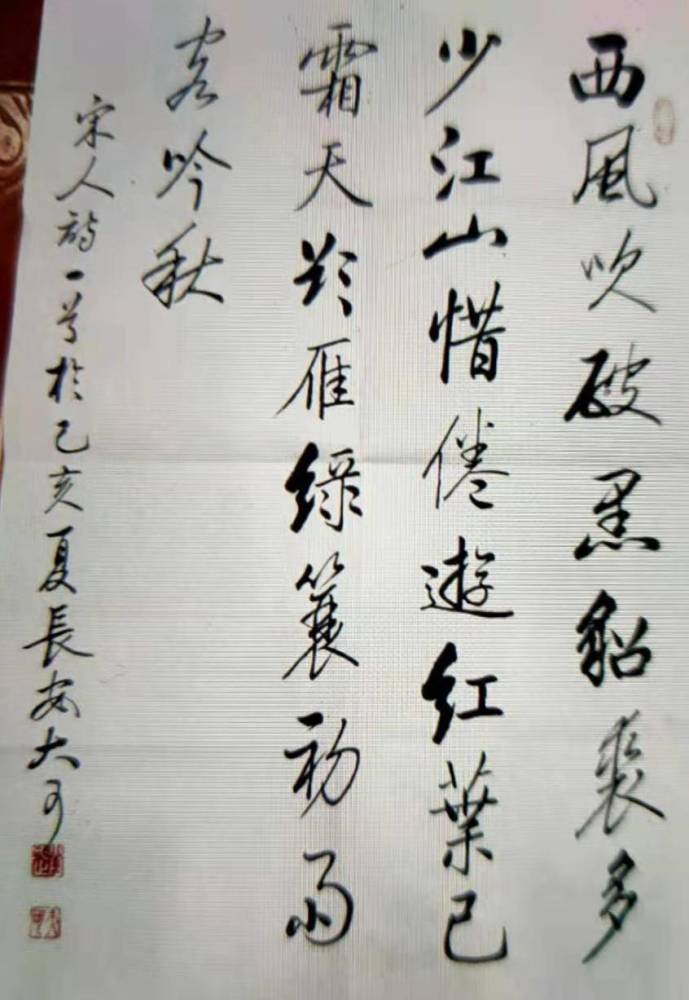 西風吹破黑貂裘多
少江山惜倦遊紅葉已
霜天欲雁綠簑初雨
客吟秋
宋人詩一首於己亥夏長安大可